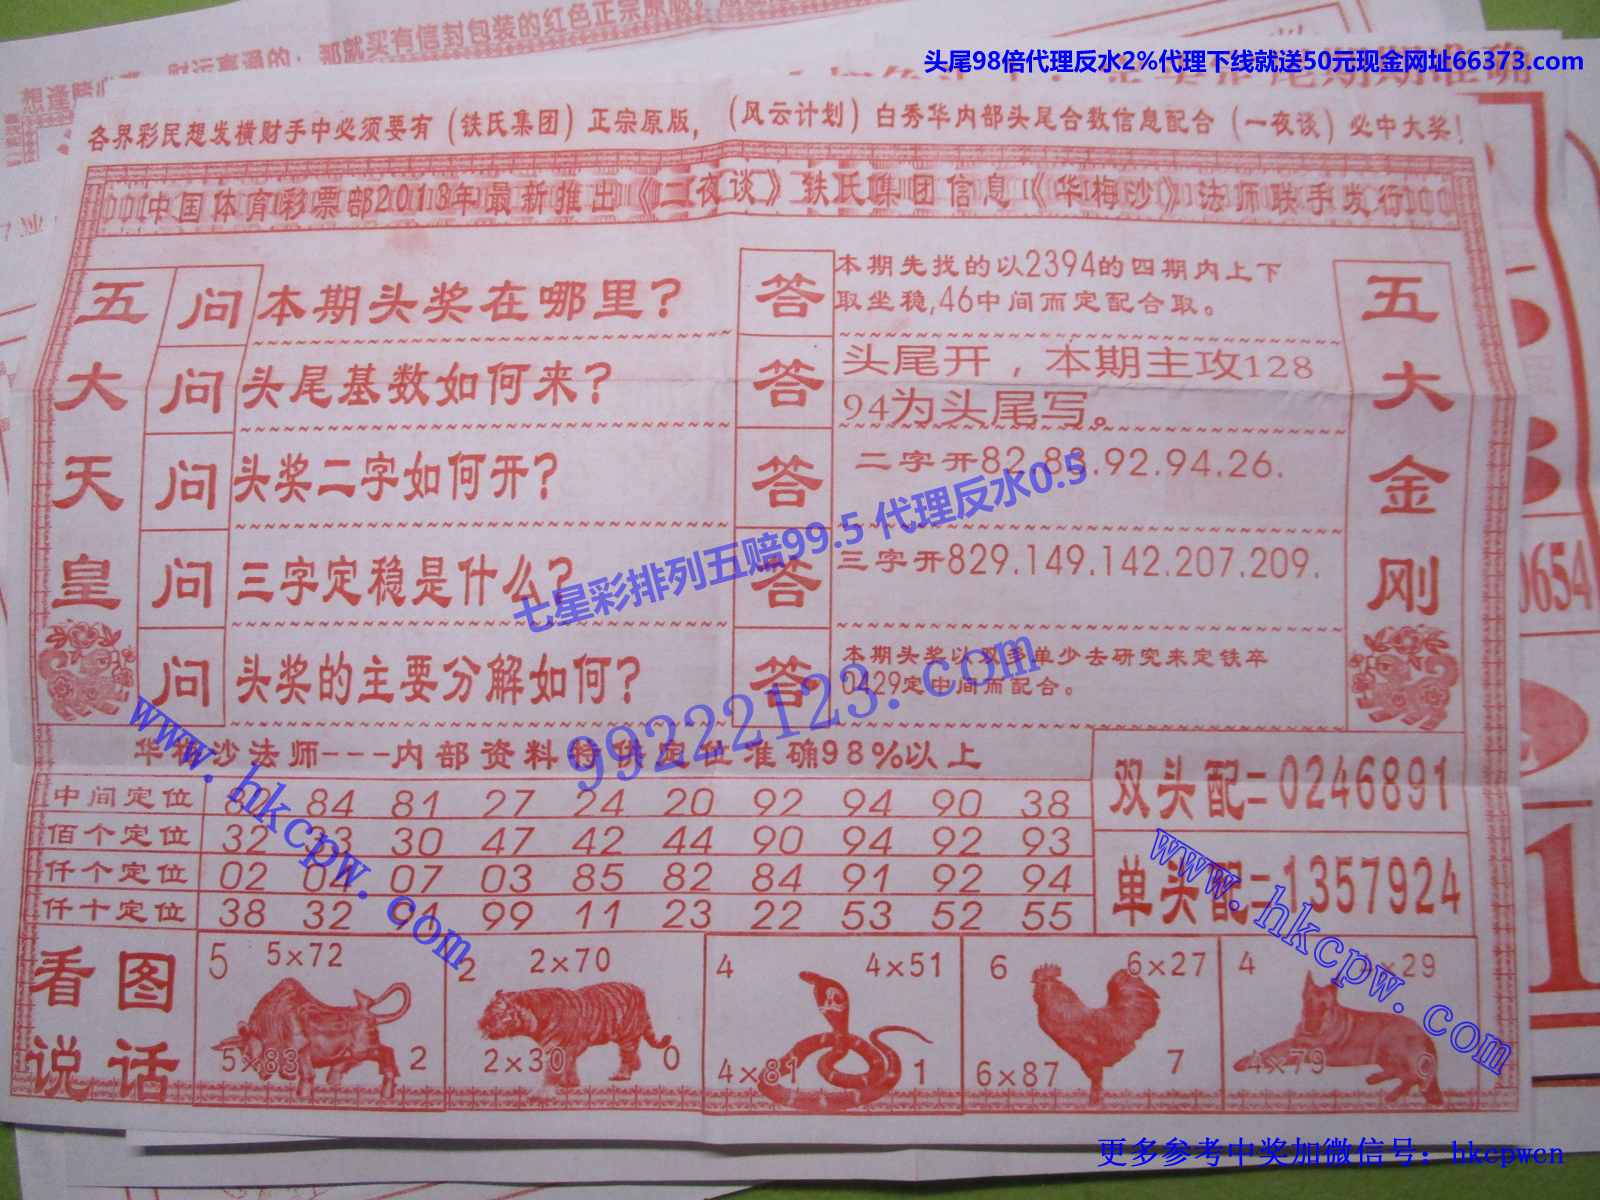 头尾98倍代理反水2%代理下线就送50元现金网址66373.com
各界彩民想发横财手中必须要有（铁氏集团）正宗原版，（风云计划）白秀华内部头尾合数信息配合（一夜谈）必中大奖！
中国体育彩票部2013年最新推出《二夜谈》铁氏集团信息《华梅沙》法师联手发行
五大天皇
问 本期头奖在哪里？
答 本期先找的以2394的四期内上下
取坐稳,46中间而定配合取。
问 头尾基数如何来？
答 头尾开，本期主攻128
94为头尾写。
问 头奖二字如何开？
答 二字开82.83.92.94.26.
问 三字定稳是什么？
答 三字开829.149.142.207.209.
问 头奖的主要分解如何？
答 本期头奖以双多单少去研究来定铁卒
0429定中间而配合。
五大金刚
七星彩排列五赔99.5 代理反水0.5
99222123.com
华梅沙法师---内部资料特供定位准确98%以上
中间定位 82 84 81 27 24 20 92 94 90 38
佰个定位 32 33 30 47 42 44 90 94 92 93
仟个定位 02 04 07 03 85 82 84 91 92 94
仟十定位 38 32 91 99 11 23 22 53 52 55
双头配=0246891
单头配=1357924
www.hkcpw.com
www.hkcpw.com
看图说话
5 5×72
5×83 2
2 2×70
2×30 0
4 4×51
4×81 1
6 6×27
6×87 7
4 ×29
4×79 9
0654
1
更多参考中奖加微信号：hkcpwcn